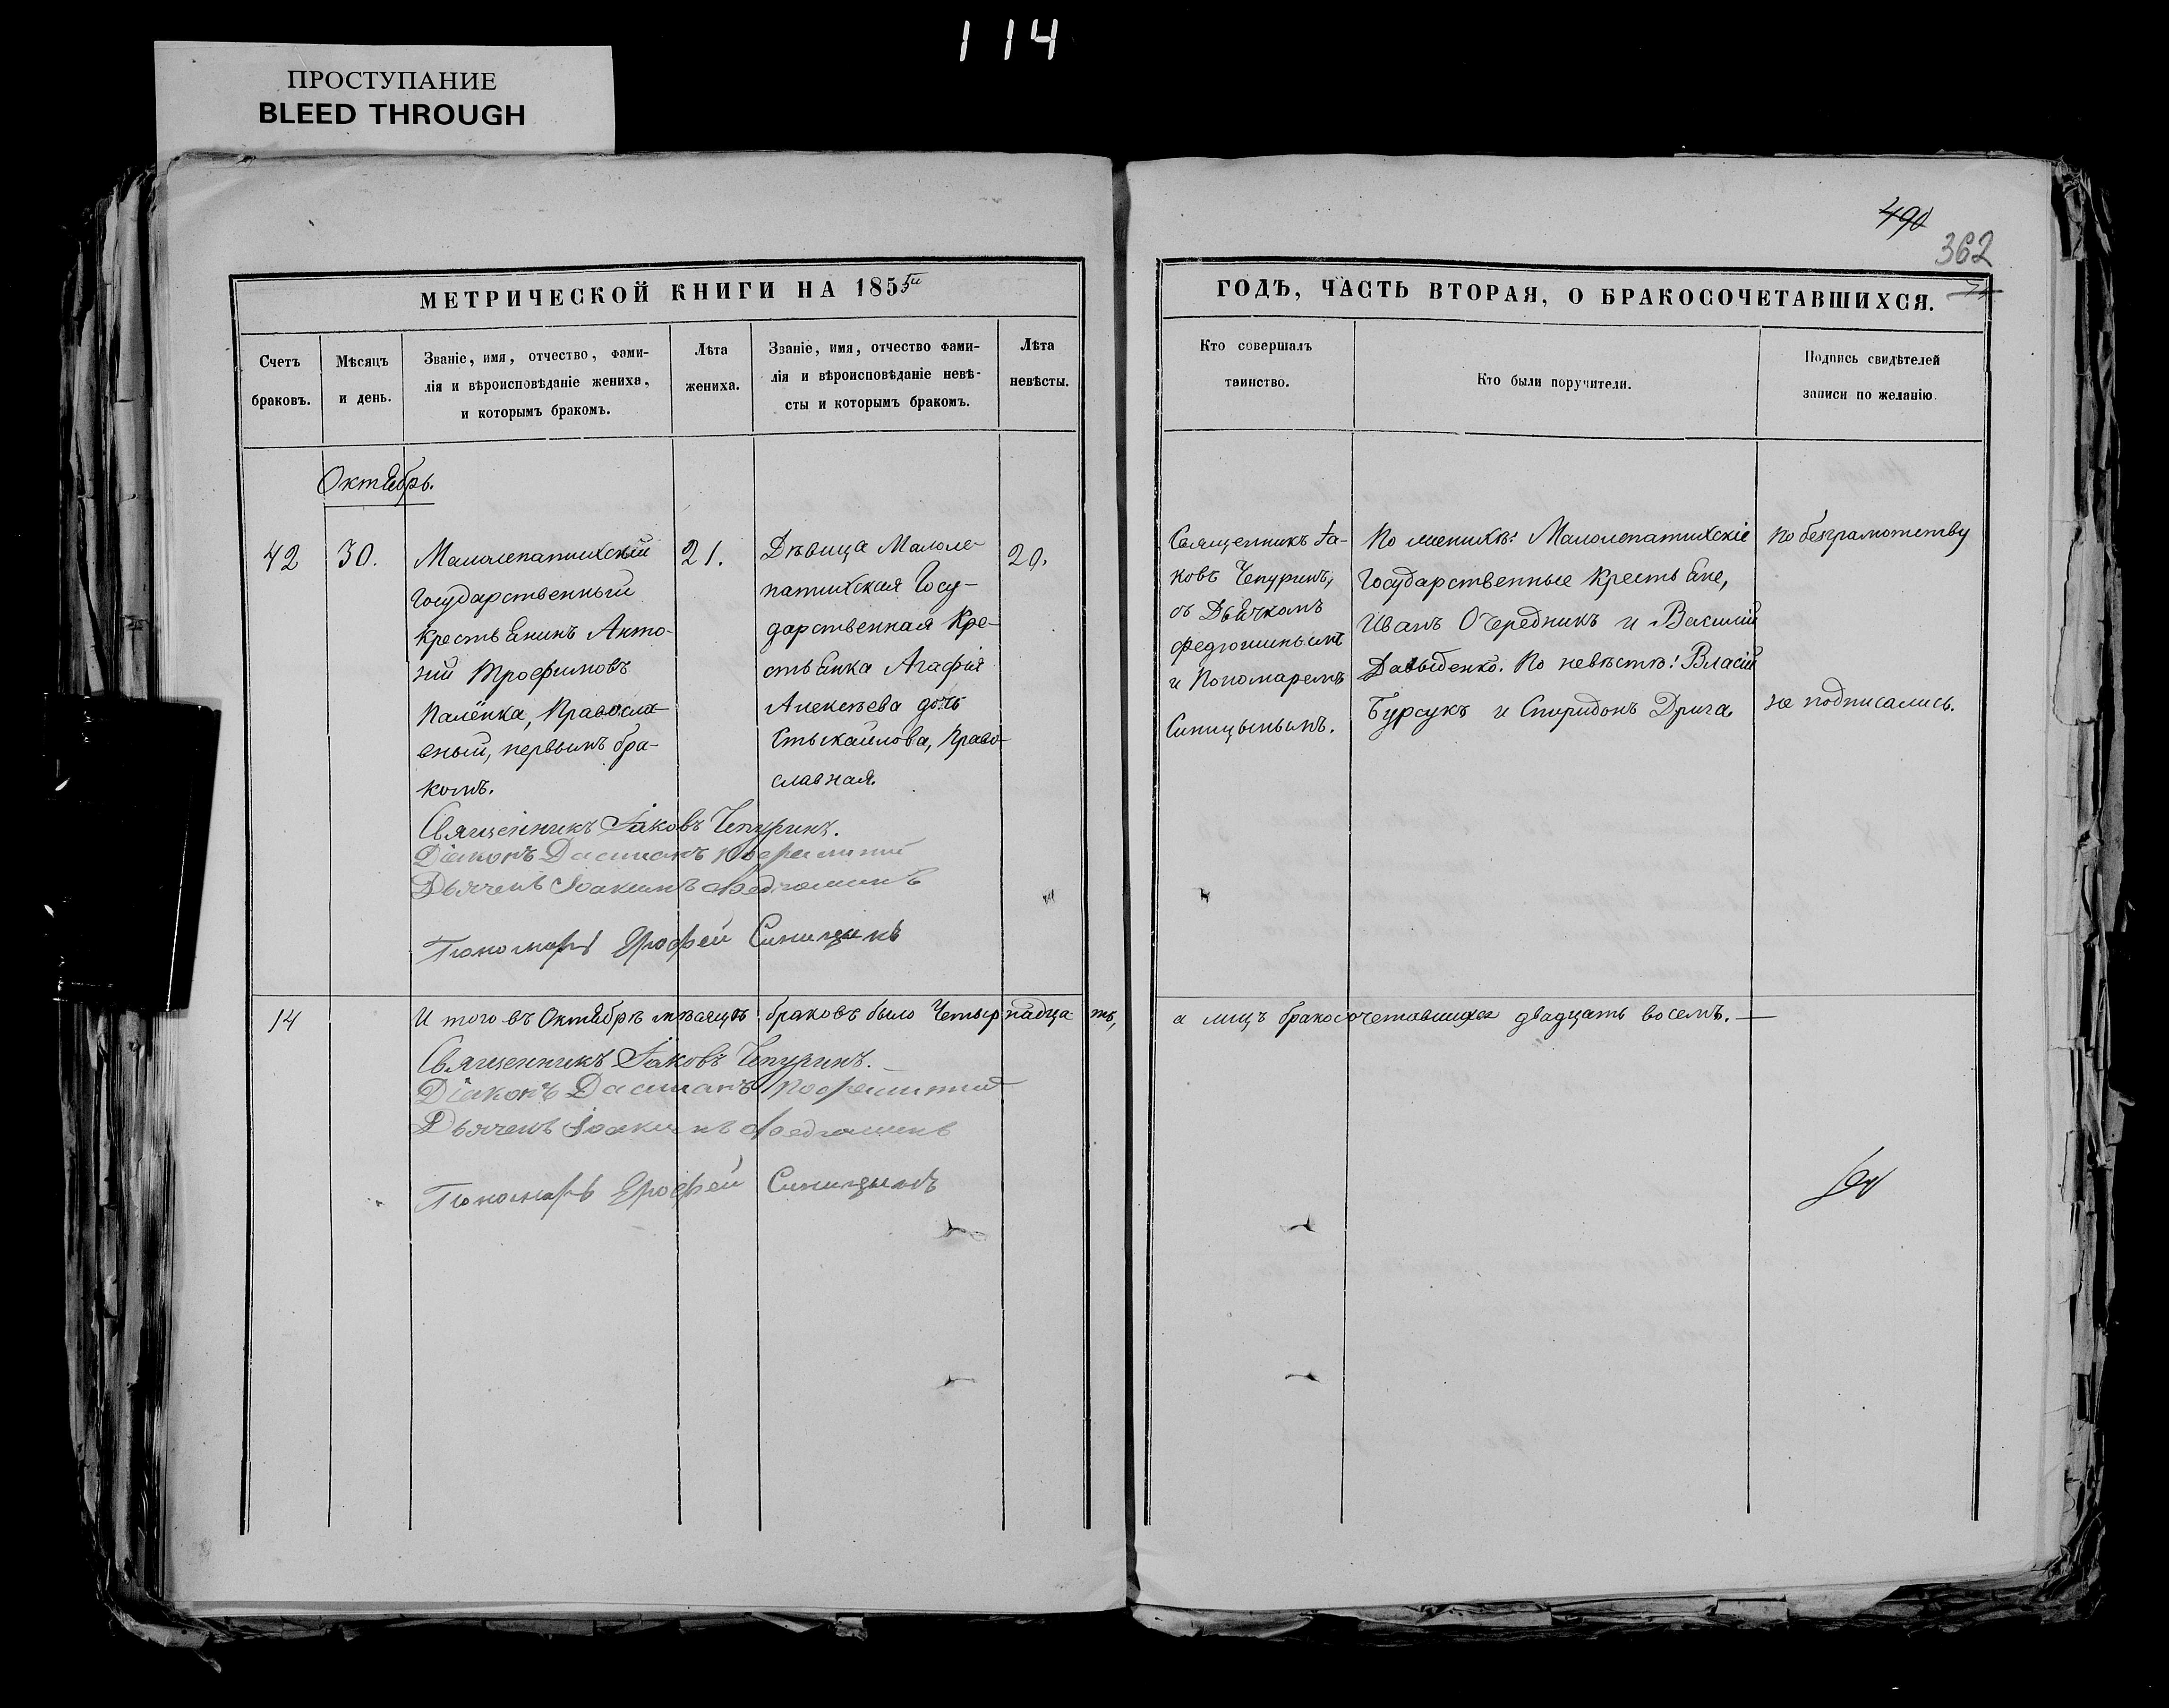 114
ПРОСТУПАНИЕ
BLEED THROUGH
490
362
МЕТРИЧЕСКОЙ КНИГИ НА 1855й
ГОДЪ, ЧАСТЬ ВТОРАЯ, О БРАКОСОЧЕТАВШИХСЯ.
Счетъ
браковъ.
Мѣсяцъ
и день.
Званіе, имя, отчество, фами-
лія и вѣроисповѣданіе жениха,
и которымъ бракомъ.
Лѣта
жениха.
Званіе, имя, отчество фами-
лія и вѣроисповѣданіе невѣ-
сты и которымъ бракомъ.
Лѣта
невѣсты.
Кто совершалъ
таинство.
Кто были поручители.
Подпись свидѣтелей
записи по желанію.
Октябрь.
42
30.
Малолепатихскій
Государственный
Крестьянинъ Анто-
ній Трофимовъ
Палёнка, Правосла-
вный, первымъ бра-
комъ.
21.
Дѣвица Малоле-
патихская Госу-
дарственная Кре-
стьянка Агафія
Алексѣева дочь
Стыкайлова, Право-
славная.
20.
Священникъ Іа-
ковъ Чепуринъ,
съ Дьячкомъ
Федюшинымъ
и Пономаремъ
Синицынымъ.
По женихѣ: Малолепатихскіе
Государственные Крестьяне,
Иванъ Очередникъ и Василій
Давыденко. По невѣстѣ: Власій
Бурсукъ и Спиридонъ Дрига,
по безграмотству
не подписались.
Священникъ Іаковъ Чепуринъ.
Діаконъ Даміанъ
Дьячекъ Іоакимъ Федюшинъ
Пономарь Ерофей Синицынъ
14
И того въ Октябрѣ мѣсяцѣ браковъ было Четырнадцать,
а лицъ бракосочетавшихся двадцать восемь.
Священникъ Іаковъ Чепуринъ.
Діаконъ Даміанъ
Дьячекъ Іоакимъ Федюшинъ
Пономарь Ерофей Синицынъ